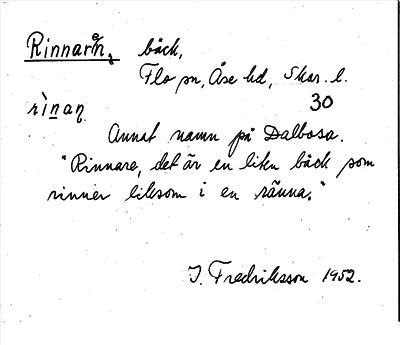 Rinnarn, bäck,
Flo sn, Åse hd, Skar. l.
30
rìnaṇ
Annat namn på Dalbosa.
"Rinnare, det är en liten bäck som
rinner liksom i en ränna."
I. Fredriksson 1952.